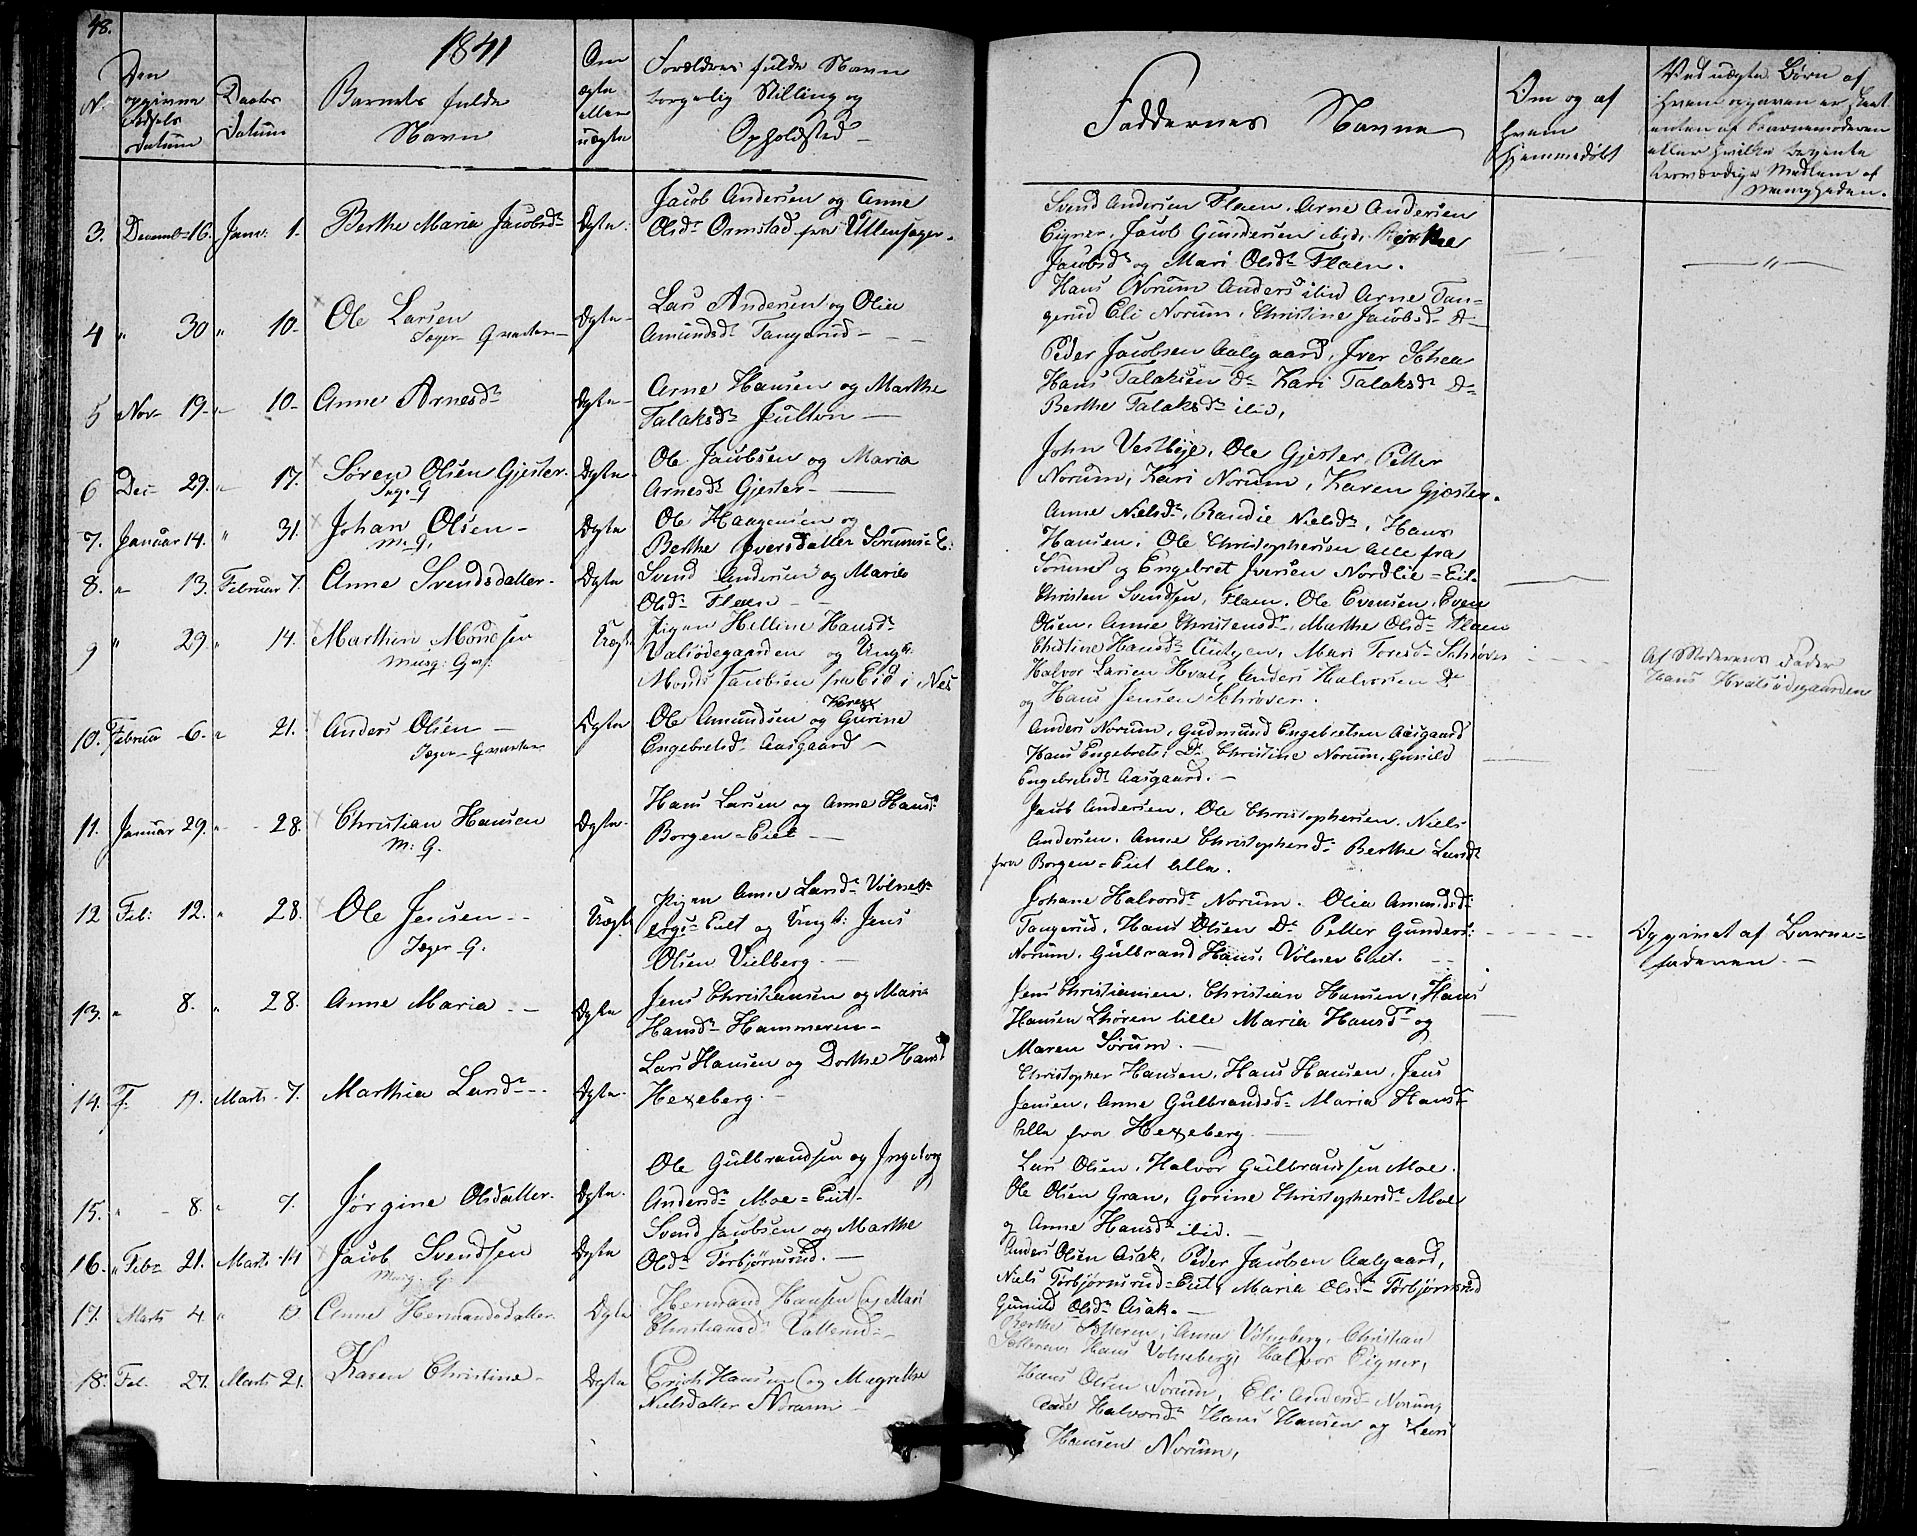 48.
1841
N.
Den
opgivne
Fødsels
Datum
Daabs
Datum
Barnets fulde
Navn
Om
ægte
eller
uægte
Forældres fulde Navn
borgerlig Stilling og
Opholdsted
Faddernes Navne
Om og af
hvem
hjemmedøbt
Ved uægte Børn af
hvem opgaven er skeet
enten af Barnemoderen
eller hvilke bekjente
troværdige Medlem af
Menigheden.
3. Decemb 16. Janr: 1. Berthe Maria Jacobsdr Ægte.
Jacob Andersen og Anne
Olsdr Ormstad fra Ullensager.
Svend Andersen Flaen. Arne Andersen
Eigner. Jacob Gundersen ibid.
Jacobsdr og Mari Olsdr Flaen.
4 " 30 " 10. Ole Larsen Ægte
Jæger-Gvarteer
Lars Andersen og Olia
Amundsdr Tangerud
Hans Norum Anders ibid Arne Tan-
gerud Eli Norum, Christine Jacobsdr Do
5 Nov 19. " 10. Anne Arnesdr Ægte
Arne Hansen og Marthe
Talaksdr Julton
Peder Jacobsen Aalgaard, Iver
Hans Talaksen Do Kari Talaksdr Do
Berthe Talaksdr ibid,
6 Dec 29. " 17. Søren Olsen Gjester. Ægte
Ole Jacobsen og Maria
Arnesdr Gjester
John Vestbye, Ole Gjester, Petter
Norum, Kari Norum, Karen Gjester.
7. Januar 14. " 31. Johan Olsen Ægte
M. G.
Ole Haagensen og
Berthe Iversdatter Sørums E:
Anne Nielsdr, Randie Nielsdr, Hans
Hansen, Ole Christophersen Alle fra
Sørum og Engebret Iversen Nordlie-Eit.
8. " 13. Februar 7. Anne Svendsdatter. Ægte
Svend Andersen og Marie
Olsdr Flaen
Christen Svendsen, Flaen. Ole Evensen, Even
Olsen, Anne Christensdr. Marthe Olsdr Flaen
9 " 29 " 14. Marthin Monssen Uægte
Pigen Helline Hansdr
Valsødegaarden og Ungk.
Monds Jacobsen fra Eid i Nes
Christine Hansdr Mari Toresdr Schrøver
Halvor Larsen Hval, Anders Halvorsen Do
og Hans Jensen Schrøver.
Af Moderens Fader
Hans Hvalsødegaarden
10. Februar 6. " 21. Anders Olsen Ægte
Jæger-Gvarteer
Ole Amundsen og Gurine
Engebretsdr Aasgaard
Anders Norum, Gudmund Engebretsen Aasgaard
Hans Engebrets: Do Christine Norum, Gunild
Engebretsdr Aasgaard.
11. Januar 29. " 28. Christian Hansen Ægte.
M: G.
Hans Larsen og Anne Hansdr
Borgen-Eiet
Jacob Andersen. Ole Christophersen. Niels
Andersen. Anne Christophersdr Berthe Larsdr
fra Borgen-Eiet Alle.
12 Feb: 12. " 28. Ole Jensen Uægte
Jæger-G.
Pigen Anne Larsdr Volnes-
bergs-Eiet og Ungk: Jens
Olsen Vielberg.
Johane Halvorsdr Norum. Olia Amundsd:
Tangerud. Hans Olsen Do Petter Gunders:
Norum. Gulbrand Hans. Volner Eiet.
Opgivet af Barne-
faderen.
13. " 8. " 28. Anne Maria Ægte
Jens Christiansen og Maria
Hansdr Hammeren
Jens Christiansen. Christian Hansen, Hans
Hansen lille Maria Hansdr og
Maren Sørum.
14. F. 11. Marts 7. Marthia Larsdr Ægte.
Lars Hansen og Dorthe Hansd
Hexeberg.
Christopher Hansen, Hans Hansen, Jens
Jensen, Anne Gulbrandsd. Maria Hansdr
Alle fra Hexeberg.
15. " 8. " 7. Jørgine Olsdatter. Ægte.
Ole Gulbrandsen og Ingeborg
Andersdr Moe-Eiet
Lars Olsen, Halvor Gulbrandsen Moe.
Ole Olsen Gran, Gorine Christophersdr Moe
og Anne Hansdr ibid.
16. " Feb 21. Marts 14 Jacob Svendsen Ægte
Svend Jacobsen og Marthe
Olsdr Torbjørnsrud.
Anders Olsen Asak, Peder Jacobsen Aalgaard,
Niels Torbjørnsrud-Eiet, Maria Olsdr Torbjørnsrud
Gunild Olsdr Asak.
17. Marts 4. " Anne Hermandsdatter. Ægte
Hermand Hansen og Mari
Christiansdr Vallerud
Berthe Anne Volneberg, Christian
Hans Volneberg, Halvor Eigner,
18. Feb. 27. Marts 21. Karen Christine Ægte
Erich Hansen og Magrethe
Nielsdatter Norum
Hans Olsen Norum, Eli Andersdr Norum,
Halvorsdr Hans Hansen og Lars
Hansen Norum,